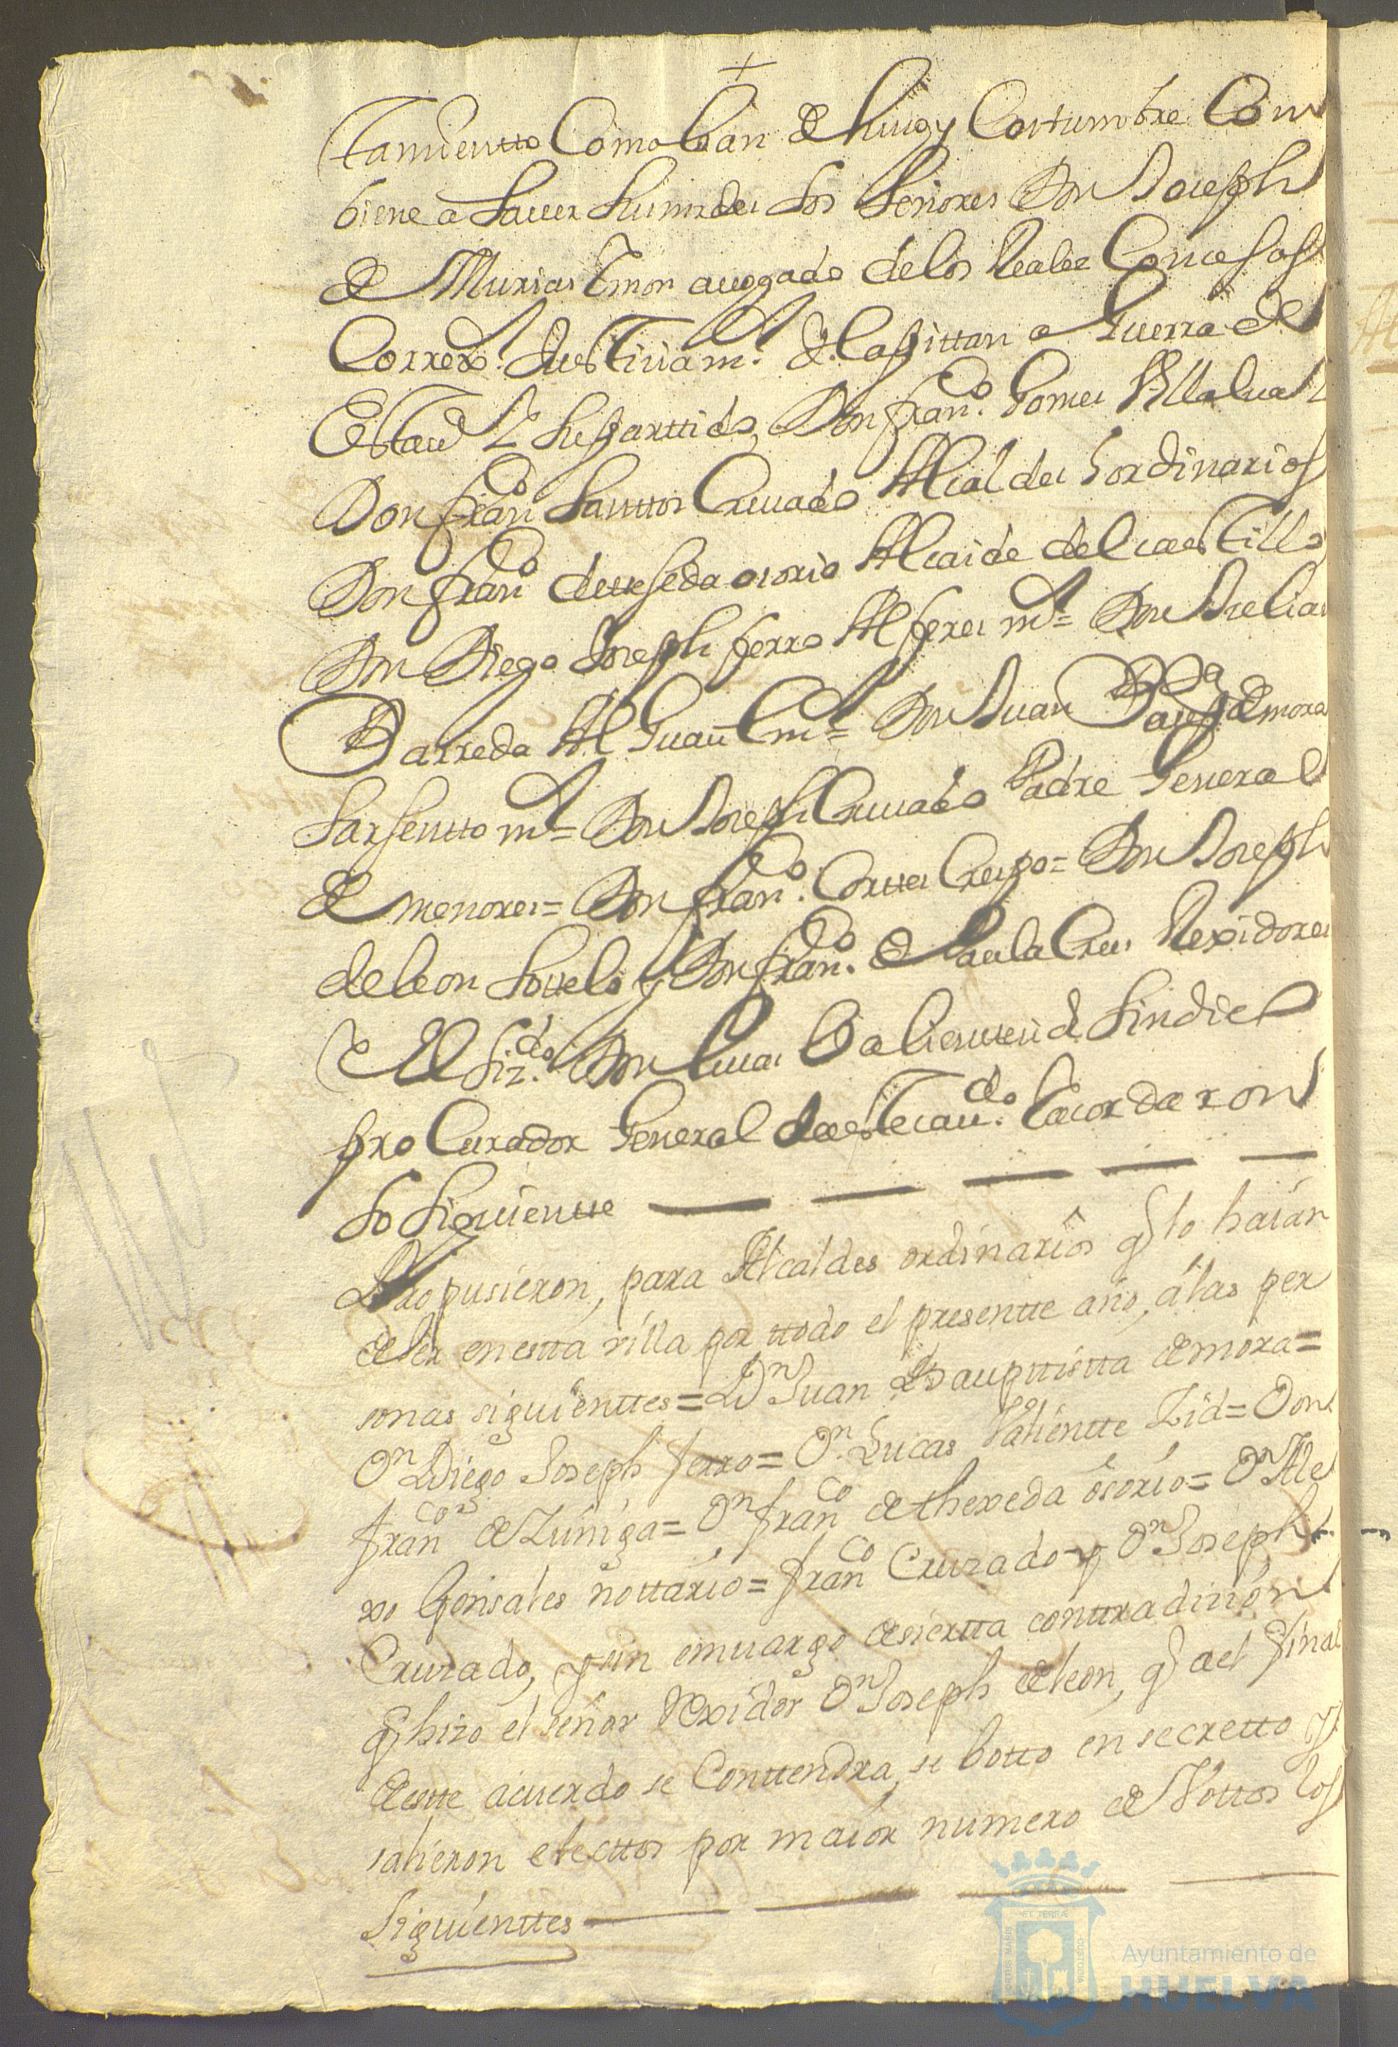 +
tamientto Como lo an de husoy Costumbre Com
biene a sauer sus mrdes los señores Don Joseph
de Murias Tinon auogado de los Reales Consejos
Correxor Justisia mr. & Capittan a Guerra de
Esta vª & su parttido, Don franco. Gomes Villalua
Don franco Santtos Crusado Alcaldes hordinarios
Don franco de ttexeda osorio Alcaide del Castillo
Don Diego Joseph ferro Alferes mr = Don Ju
Barreda Alguasil mr = Don Juan Bauptª de mora
Sarjentto mr = Don Joseph Crusado Padre General
de menores = Don franco. Corttes Crespo = Don Joseph
de leon Sottelo y Don franco. de Paula Crus Rexidores
& El lizdo. Don lucas Balientte sid Sindico
procurador General de este cauido. & acordaron
lo Siguientte
Propusieron, para Alcaldes ordinarios q lo haian
de ser en estta villa por ttodo el presentte año, á las per
sonas siguienttes = Dn Juan Bauptistta de mora =
Dn Diego Joseph ferro = Dn. Lucas Valientte Zid = Don
franco de Zuniga = Dn franco de thexeda osorio = Dn Ale
xo Gonsales nottario = franco Cruzado y Dn Joseph
Cruzado, y sin emuargo de siertta conttradizion
q hizo el señor Rexidor Dn Joseph de leon, q a el final
de estte acuerdo se Conttendra, se botto en secretto y
salieron electtos por maior numero de Vottos los
Siguienttes
Ayuntamiento de
HUELVA